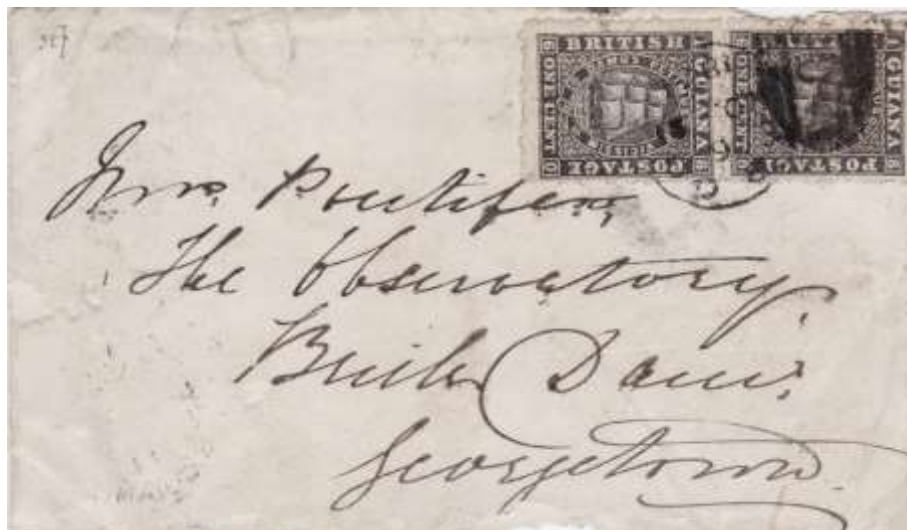 BRITISH
GUIANA
POSTAGE
ONE CENT
GUIANA
POSTAGE
ONE CENT
Mrs. Pontifex,
The Observatory,
Dam,
Georgetown.